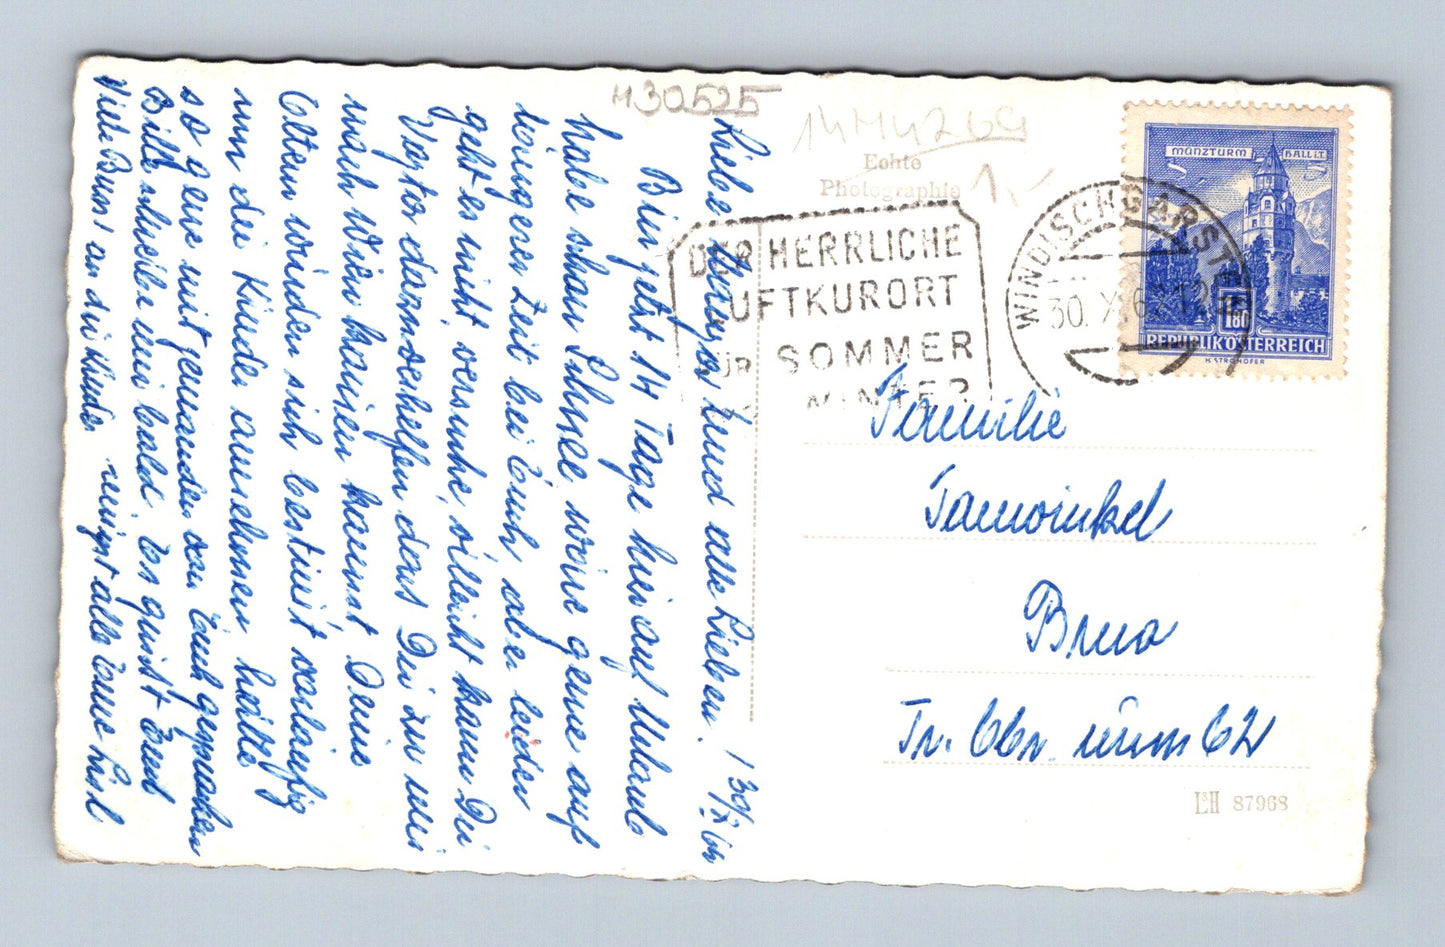 H30525
14M4269
1,-
Echte
Photographie
DER HERRLICHE
LUFTKURORT
FÜR SOMMER
WINTER
WINDISCHGARSTEN
30. X. 6
MÜNZTURM HALL I.T.
1.80
REPUBLIK ÖSTERREICH
H. STROHOFER
Liebe und alle Lieben! 30/X 64
Bin jetzt 14 Tage hier auf Urlaub
habe schon Schnee, wäre gerne auf
längere Zeit bei Euch, aber leider
geht es nicht versuche, villeicht kann Dir
Dir zu uns
nach Wien kannst Deine
Eltern würden sich bestimmt vorläufig
um die Kinder annehmen hätte
so gerne mit jemanden von Euch gesprochen
Bitte schreibe mir bald. Es grüsst Euch
Viele Bussi an die Kinder innigst alle Eure Lisl
Familie
Tamwinkel
Brno
Tr. Obr. míru 62
L&H 87968